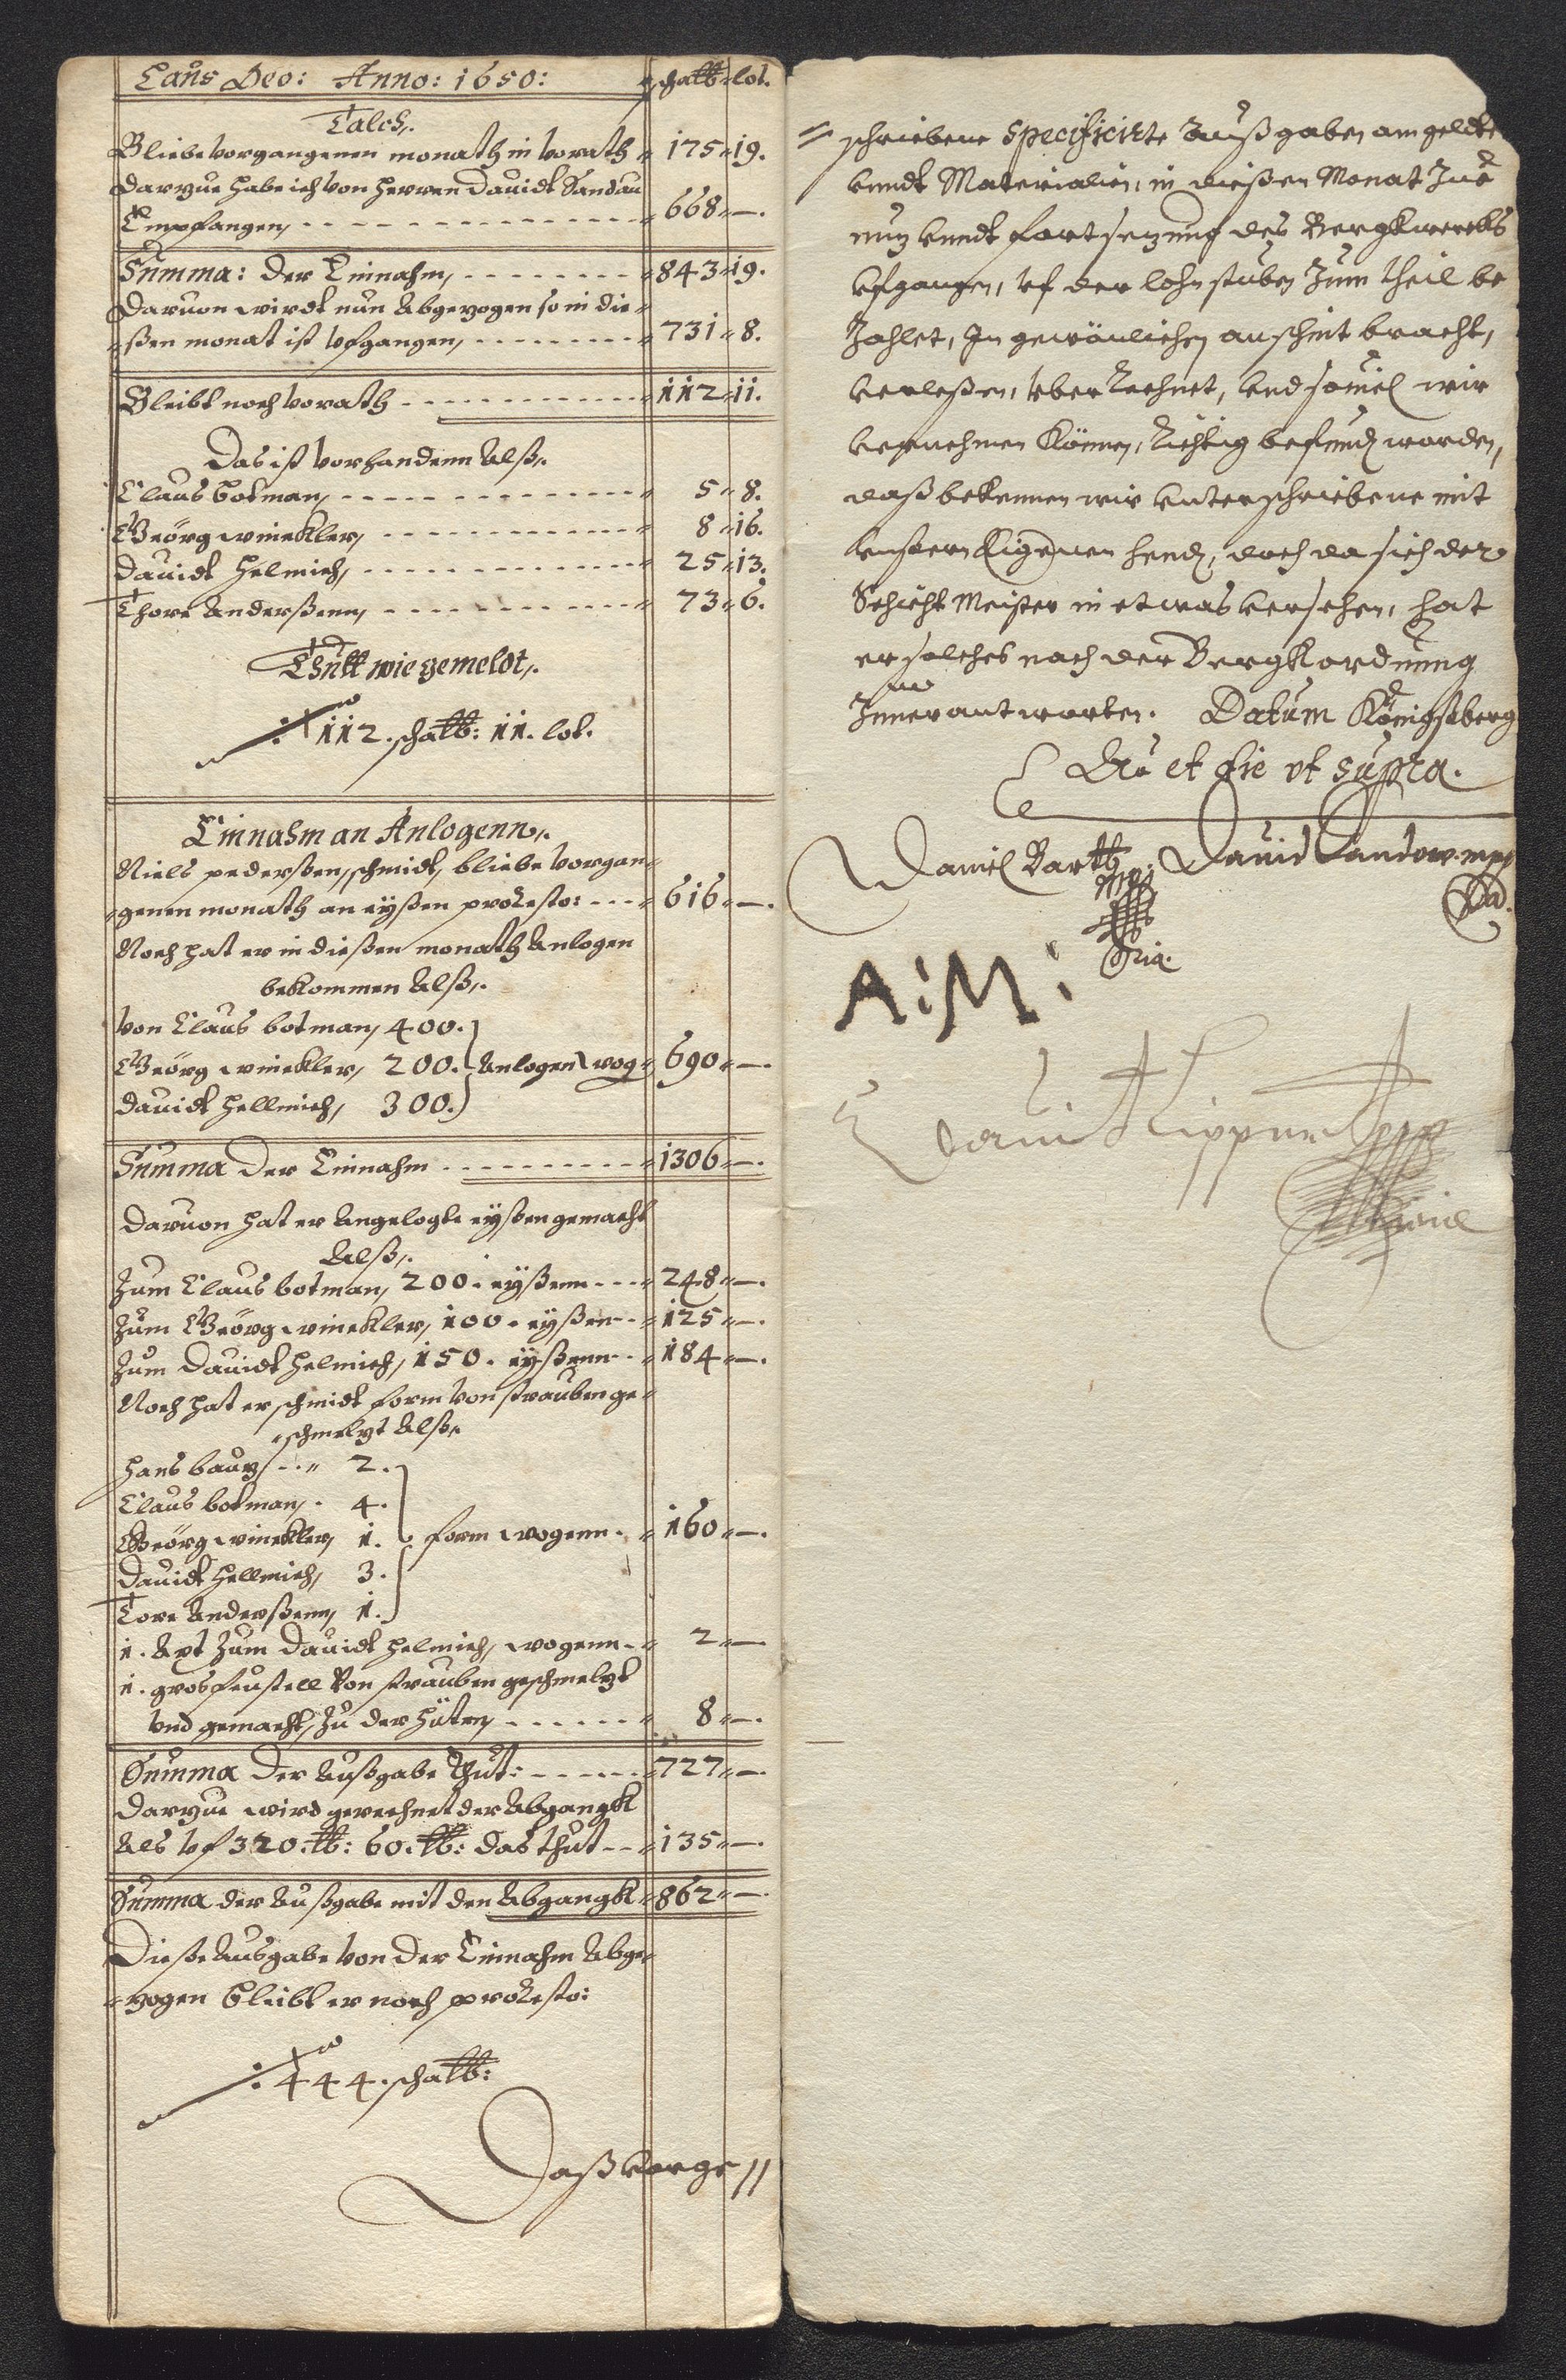 Laus Deo: Anno: 1650: schalb lot.
Talch,.
Bliebe vorgangenen monath in vorath 175 19.
Darzue habe ich von herren Dauidt Sandau
Empfangen, 668 —.
Summa: der Einnahm, 843 19.
Daruon wirdt nun Abgezogen so in die-
-ßen monat ist vfgangen, 731 8.
Bleibt noch vorath 112 11.
Das ist vorhandenn Alß,.
Claus botman, 5 8.
Geörg winckler, 8 16.
Dauidt Helmich, 25 13.
Thore Anderßenn, 73 6.
Thutt wie gemeldt,.
112. schalb: 11. lot.
Einnahm an Anlogenn,.
Niels pederßen, schmidt, bliebe vorgan-
-genen monath an eyßen pro Resto: 616 —.
Noch hat er in dießen monath Anlogen
bekommen Alß,.
von Claus botman, 400.
Geörg winckler, 200. Anlogen wog 690 —.
Dauidt Hellmich, 300.
Summa der Einnahm 1306 —.
Daruon hat er Angelogte eyßen gemacht
Alß,.
Zum Claus botman, 200. eyßenn 248 —.
Zum Geörg winckler, 100. eyßen 125 —.
Zum Dauidt Helmich, 150. eyßenn 184 —.
Noch hat er schmidt form von strauben ge-
-schmeltzt Alß,.
Hans bautz, 2.
Claus botman, 4.
Geörg winckler, 1. form wogenn 160 —.
Dauidt Hellmich, 3.
Tore Anderßenn, 1.
1. Axt Zum Dauidt Helmich, wogenn 2 —
1. gros feustell Von strauben geschmeltzt
vnd gemacht, Zu der Hüten, 8 —.
Summa der Außgabe Thut: 727 —.
Darzue wird gerechnet der Abgangk
Als vf 320. lb: 60. lb: das thut 135 —.
Summa der Außgabe mit den Abgangk 862 —.
Dieße Ausgabe von der Einnahm Abge-
-zogen Bleibt er noch pro Resto:
444. schalb:
Daß vorge //
= schriebene Specificirte Außgaben am geldte
vnndt Materialien, in dießen Monat Zue
nutz vnndt fortsetzung des Bergkwercks
vfgangen, vf der lohnstuben Zum theil be
Zahlet, In gewönlichen anschnit bracht,
verleßen, vberRechnet, vnd souiel wir
vernehmen Können, Richtig befund worden,
daß bekennen wir vnterschriebene mit
vnßern Eigenen hend, doch da sich der
Schicht Meister in etwas versehen, hat
er solches nach der Bergkordnung
Zuuerantworten. Datum Königsberg
et die vt supra.
Daniel Barth Dauid Sandow. mpp
mpp
A: M:
Dauidt